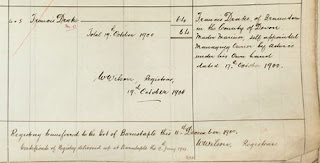 Francis Drake
64
Francis Drake, of Braunton
in the County of Devon
Total 19th October 1900
64
Master Mariner, self appointed
Managing Owner by Advice
under his own hand
dated 17th October 1900.
Registrar,
19th October 1900
Registry transferred to the Port of Barnstaple this 11th December, 1900.
Certificate of Registry delivered up at Barnstaple the
Registrar